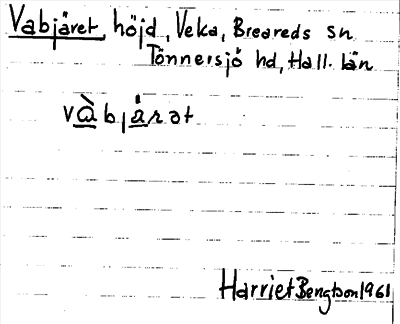 Vabjäret, höjd, Veka, Breareds sn
Tönnersjö hd, Hall. län
vàbjärət
Harriet Bengtson 1961